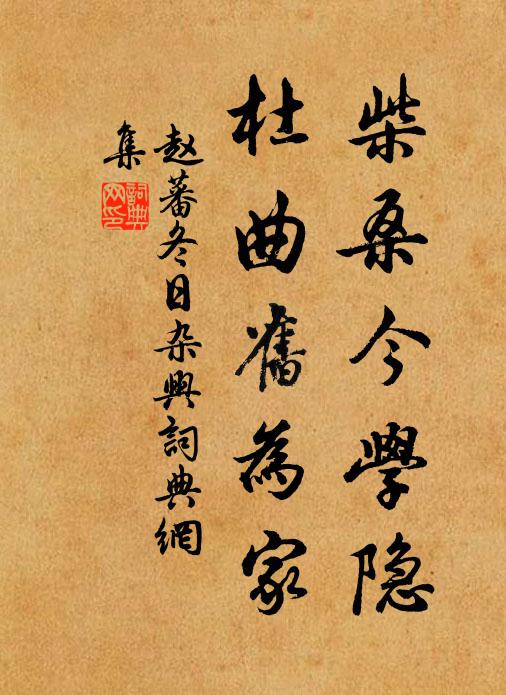 柴桑今學隐
杜曲舊為家
赵蕃冬日杂興詞典網
集
詞典网印